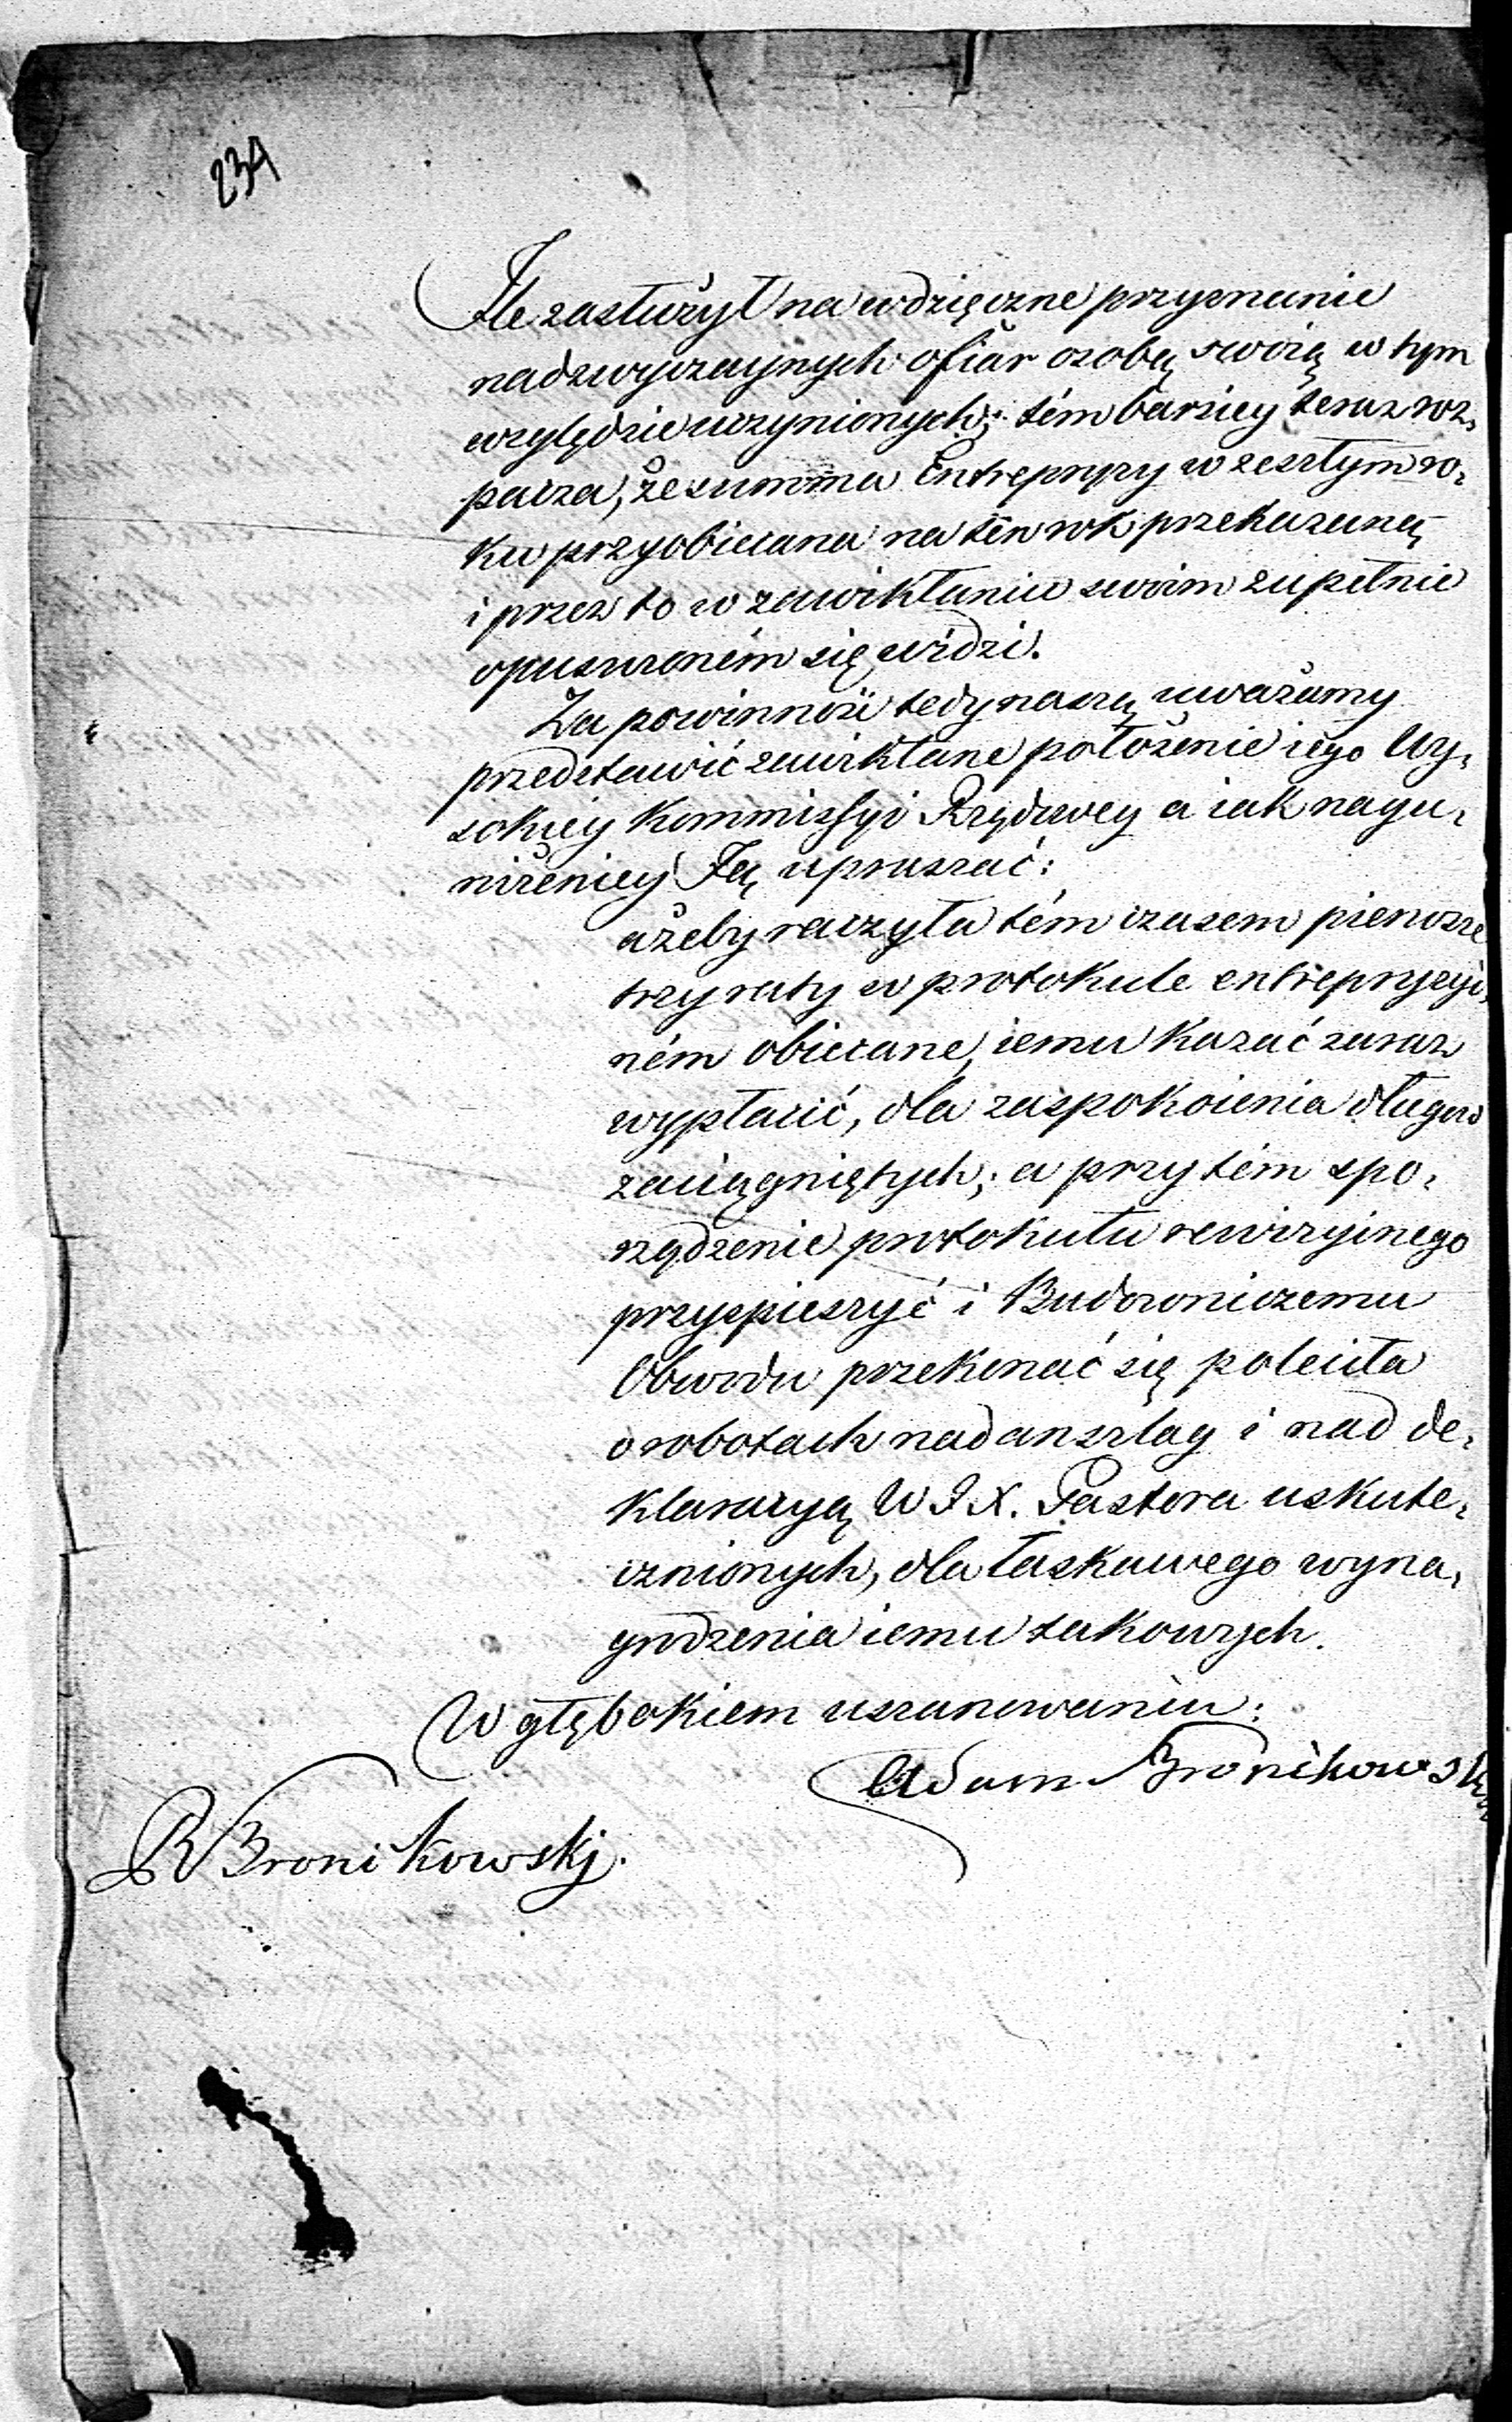 234
Ile zasłużył na wdzięczne przyznanie
nadzwyczaynych ofiar osobą swoią w tym
względzie uczynionych; tém barziey teraz roz,
pacza, że summa Entrepryzy w zeszłym ro,
ku przyobiecana na ten rok przekazaną
i przez to w zawikłaniu swoim zupełnie
opuszczoném się widzi.
Za powinność tedy naszą uważamy
przedstawić zawikłane położenie iego Wy,
sokiey Kommissyi Rządowey a iak nayu,
niżeniey Ją upraszać:
ażeby raczyła tém czasem pierwsze
trzy raty w protokule entrepryzyi,
ném obiecane, iemu kazać zaraz
wypłacić, dla zaspokoienia długow
zaciągniętych; a przy tém spo,
rządzenie protokułu rewizyinego
przyspieszyć i Budowniczemu
Obwodu przekonać się poleciła
o robotach nad anszlag i nad de,
klaracyą W I X. Pastora uskute,
cznionych, dla łaskawego wyna,
grodzenia iemu takowych.
W głębokiem uszanowaniu:
Adam Bronikowski
R Bronikowskj.